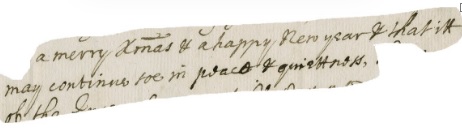 a merry Xmas & a happy New year & that itt
may continue soe in peace & quiettness,
of the